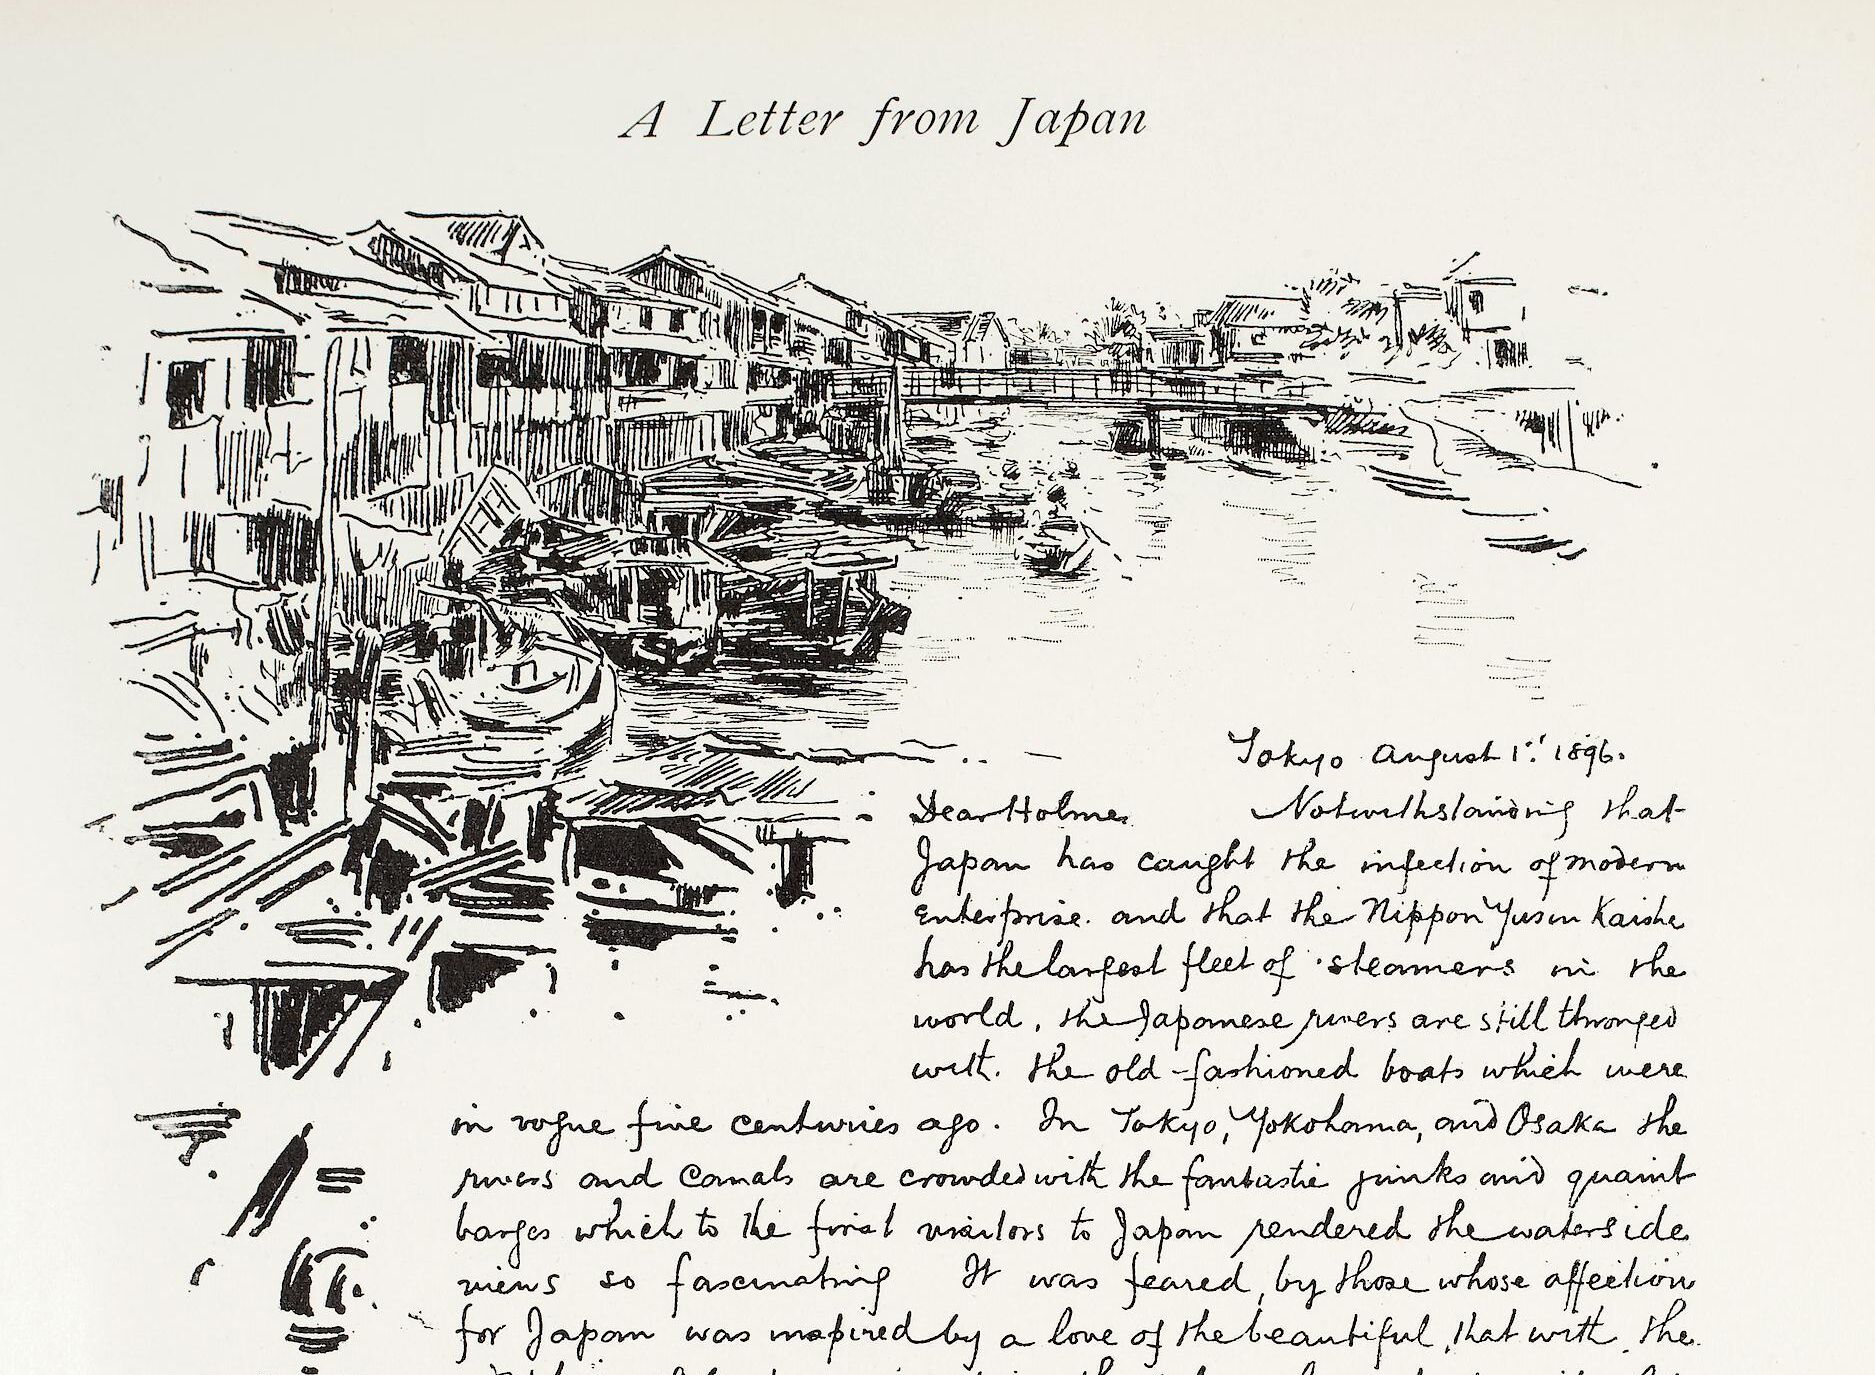 A Letter from Japan
Tokyo August 1st 1896.
Dear Holme, Notwithstanding that
Japan has caught the infection of modern
enterprise. and that the Nippon Yusen Kaisha
has the largest fleet of steamers in the
world, the Japanese rivers are still thronged
with. the old-fashioned boats which were
in vogue five centuries ago. In Tokyo, Yokohama, and Osaka the
rivers and canals are crowded with the fantastic junks and quaint
barges which to the first visitors to Japan rendered the waterside
views so fascinating It was feared, by those whose affection
for Japan was inspired by a love of the beautiful, that with the